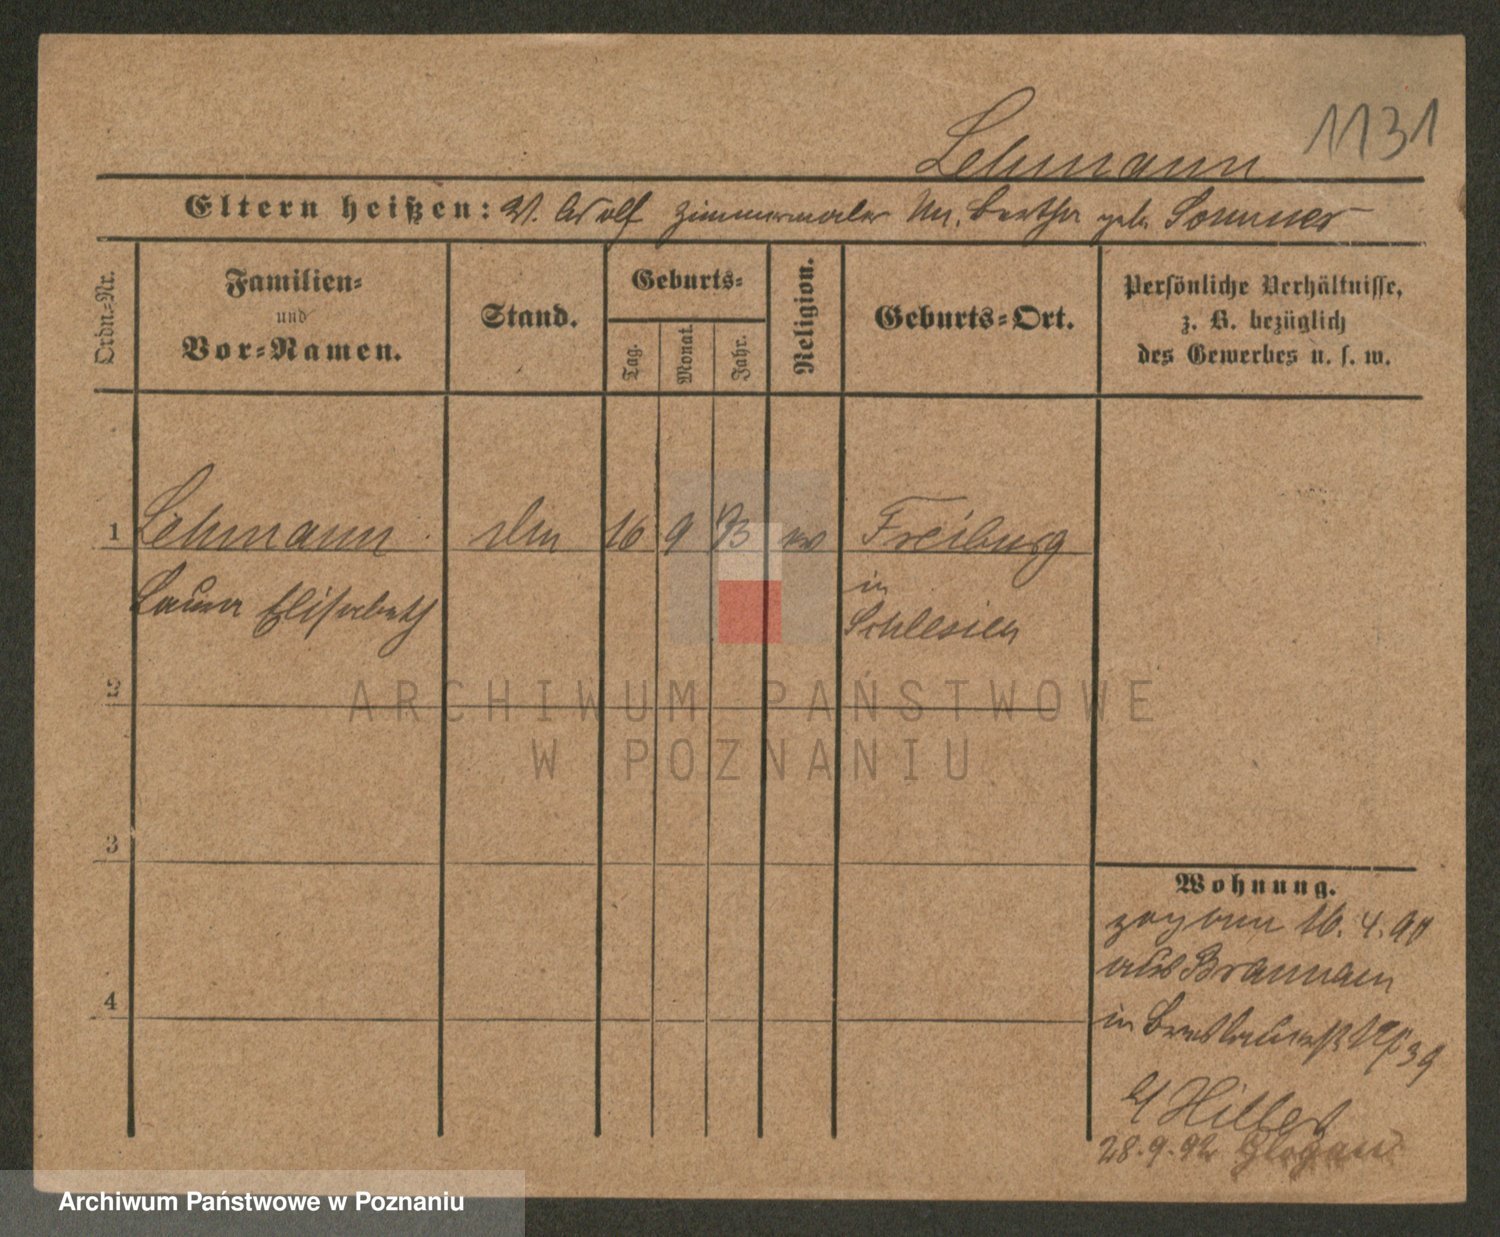 Lehmann
1131
Eltern heißen: V. Adolf Zimmermaler M. Bertha geb. Sommer
Ordn.-Nr.
Familien-
und
Vor-Namen.
Stand.
Geburts-
Tag.
Monat.
Jahr.
Religion.
Geburts-Ort.
Persönliche Verhältnisse,
z. B. bezüglich
des Gewerbes u. s. w.
1 Lehmann 16 9 73 ev Freiburg
Laura Elisabeth
in
Schlesien
2
ARCHIWUM PAŃSTWOWE
W POZNANIU
3
4
Wohnung.
zogen 16. 4. 90
aus
in Breslauerstr 39
b/ Hiller
28.9.92 Glogau
Archiwum Państwowe w Poznaniu